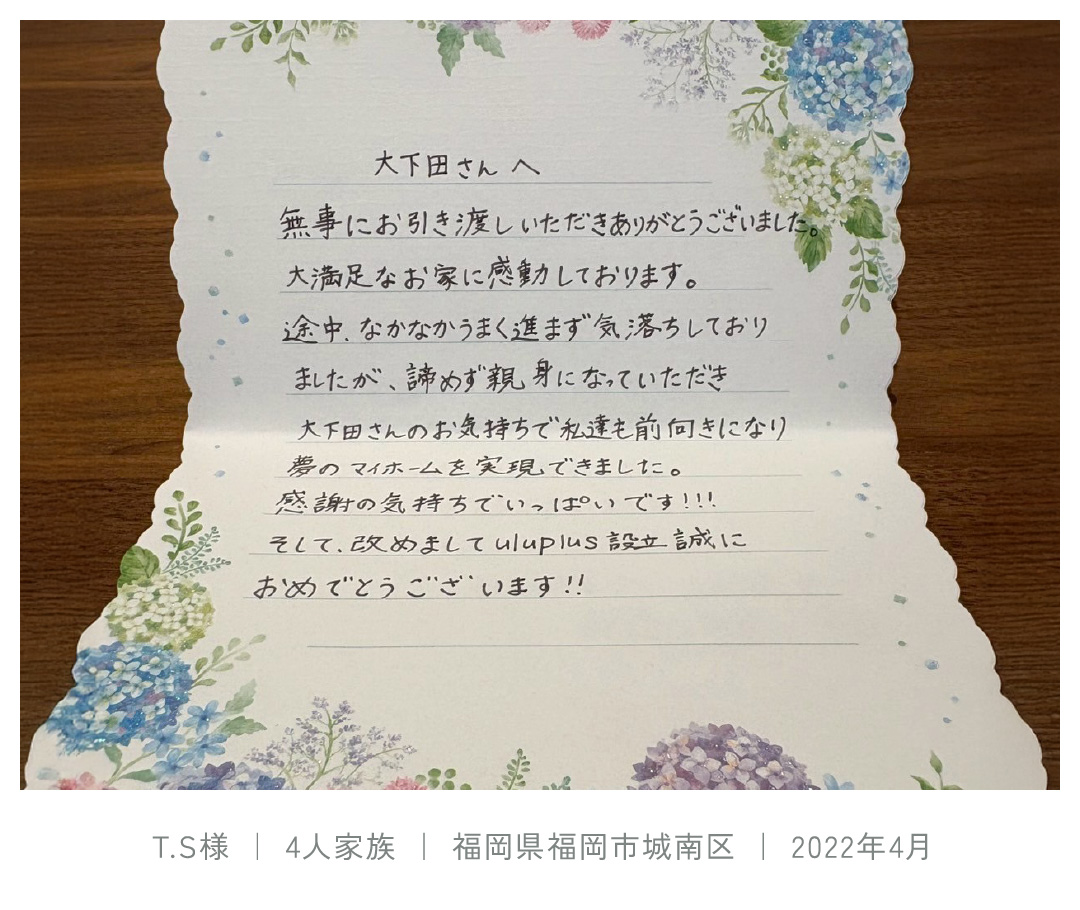 大下田さんへ
無事にお引き渡しいただきありがとうございました。
大満足なお家に感動しております。
途中、なかなかうまく進まず気落ちしており
ましたが、諦めず親身になっていただき
大下田さんのお気持ちで私達も前向きになり
夢のマイホームを実現できました。
感謝の気持ちでいっぱいです!!!
そして、改めまして uluplus 設立誠に
おめでとうございます!!
T.S様 | 4人家族 | 福岡県福岡市城南区 | 2022年4月